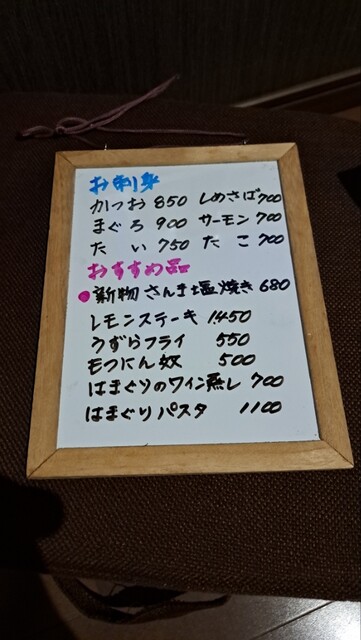 お刺身
かつお 850 しめさば 700
まぐろ 900 サーモン 700
たい 750 たこ 700
おすすめ品
●新物さんま塩焼き 680
レモンステーキ 1450
うずらフライ 550
もつにん奴 500
はまぐりのワイン蒸し 700
はまぐりパスタ 1100